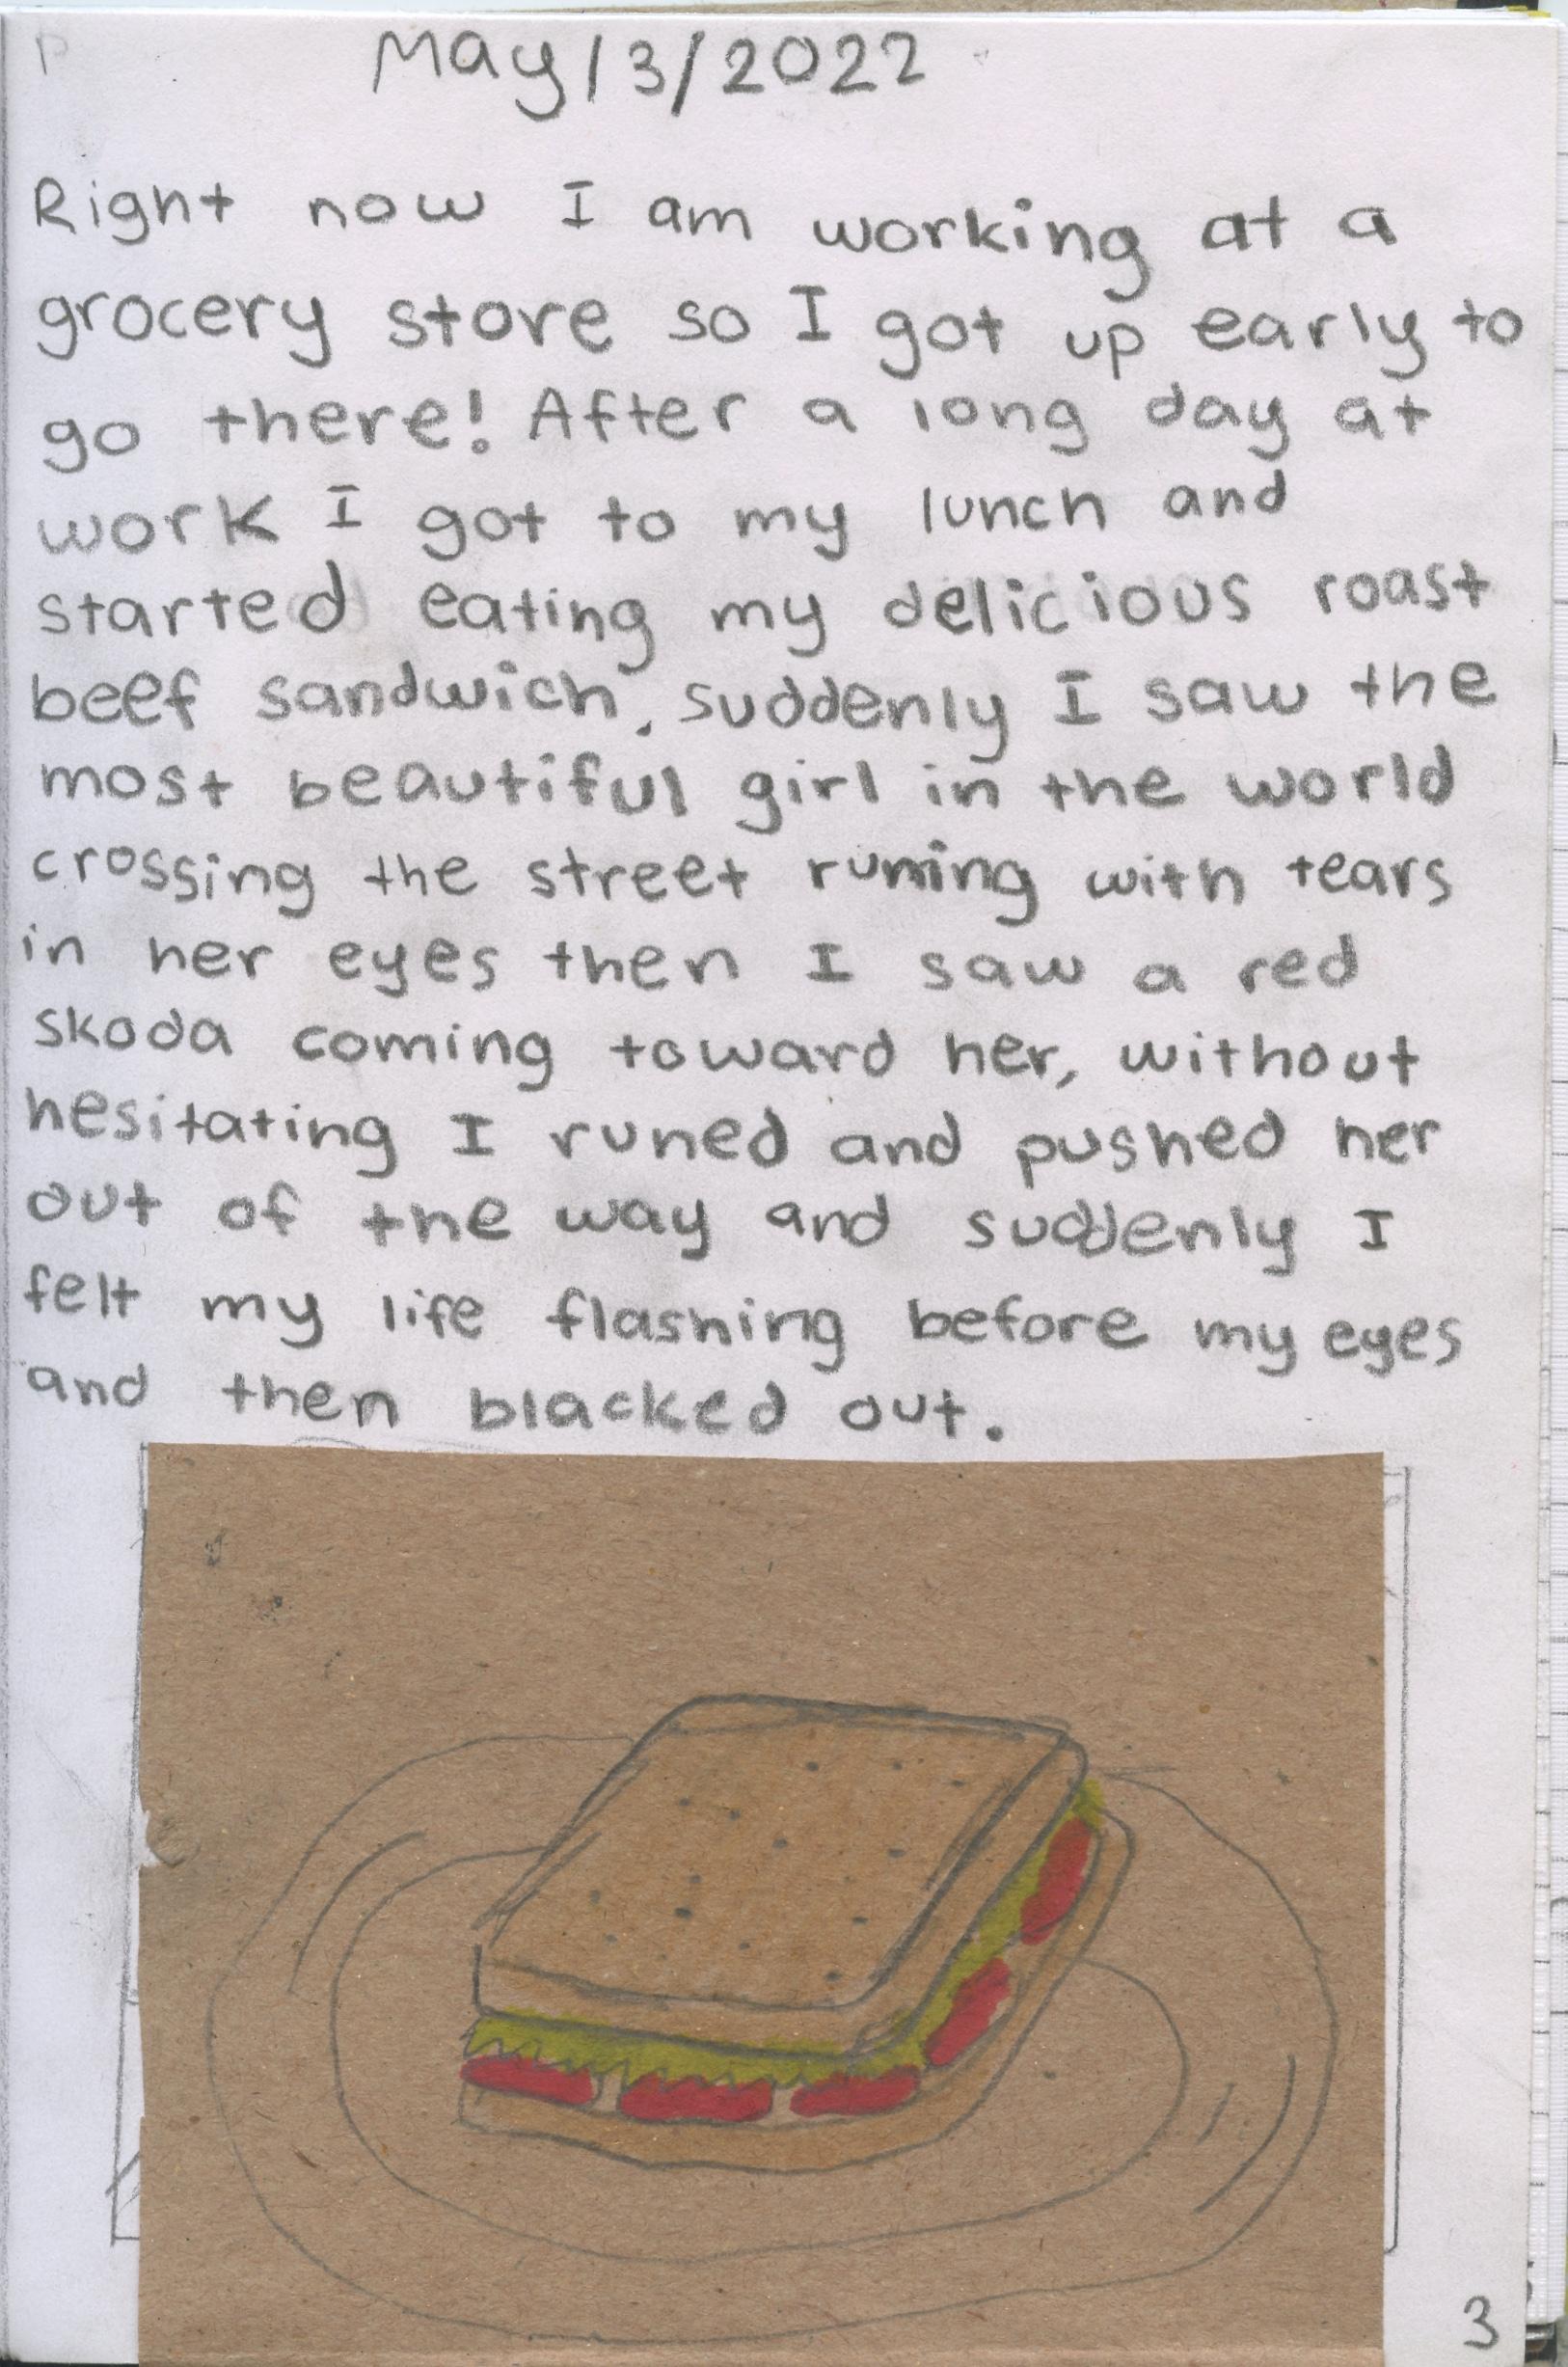 May/3/2022
Right now I am working at a
grocery store so I got up early to
go there! After a long day at
work I got to my lunch and
started eating my delicious roast
beef sandwich. suddenly I saw the
most beautiful girl in the world
crossing the street runing with tears
in her eyes then I saw a red
skoda coming toward her, without
hesitating I runed and pushed her
out of the way and suddenly I
felt my life flashing before my eyes
and then blacked out.
3